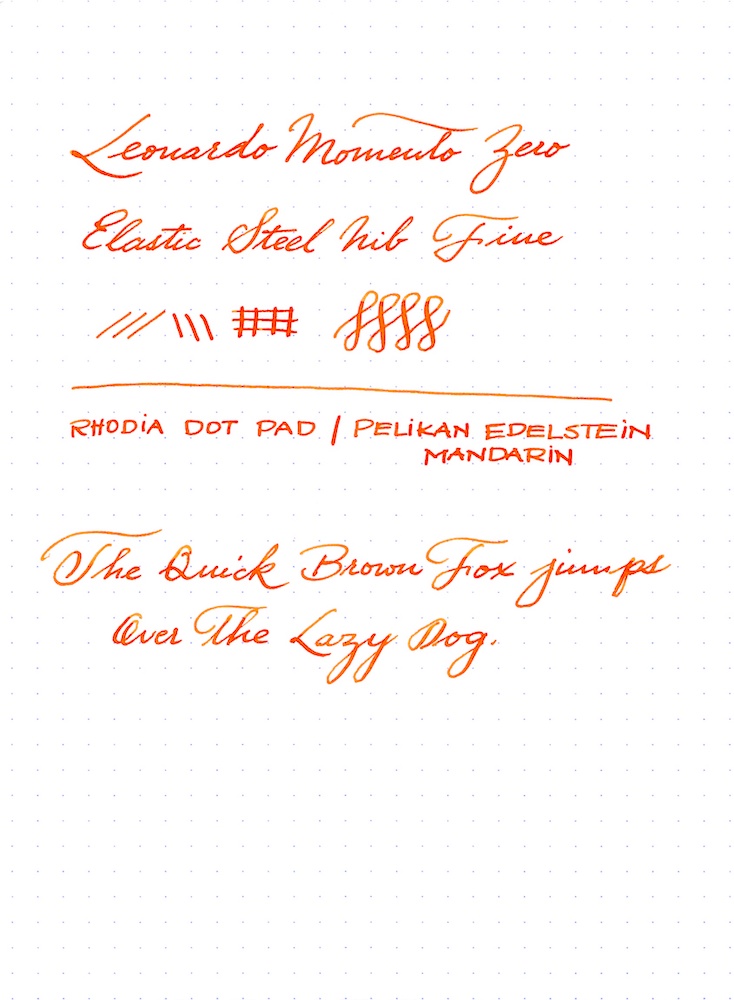 Leonardo Momento Zero
Elastic Steel Nib Fine
RHODiA DOT PAD / PELiKAN EDELSTEiN
MANDARiN
The Quick Brown Fox jumps
Over The Lazy Dog.